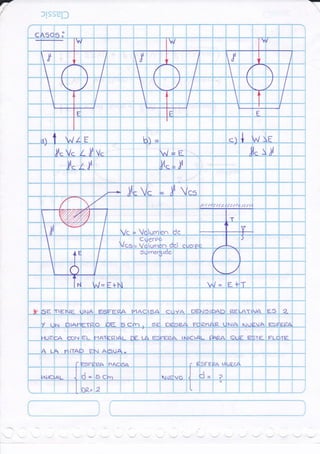 Classic
CASOS:
W W W
γ γ γ
E E E
a) ↑ W∠E b) = c) ↓ W>E
γc Vc ∠ γ Vc W = E γc > γ
γc ∠ γ γc = γ
γc Vc = γ Vcs
γ Vc = Volumen de T
Cuerpo
Vcs = Volumen del cuerpo
E Sumergido
N W=E+N W = E+T
SE TIENE UNA ESFERA MACISA CUYA DENSIDAD RELATIVA ES 2
Y UN DIAMETRO DE 5 cm, SE DEBERA FORMAR UNA NUEVA ESFERA
HUECA CON EL MATERIAL DE LA ESFERA INICIAL PARA QUE ESTE FLOTE
A LA MITAD EN AGUA.
ESFERA MACISA ESFERA HUECA
INICIAL d = 5 cm NUEVO d = ?
DR = 2